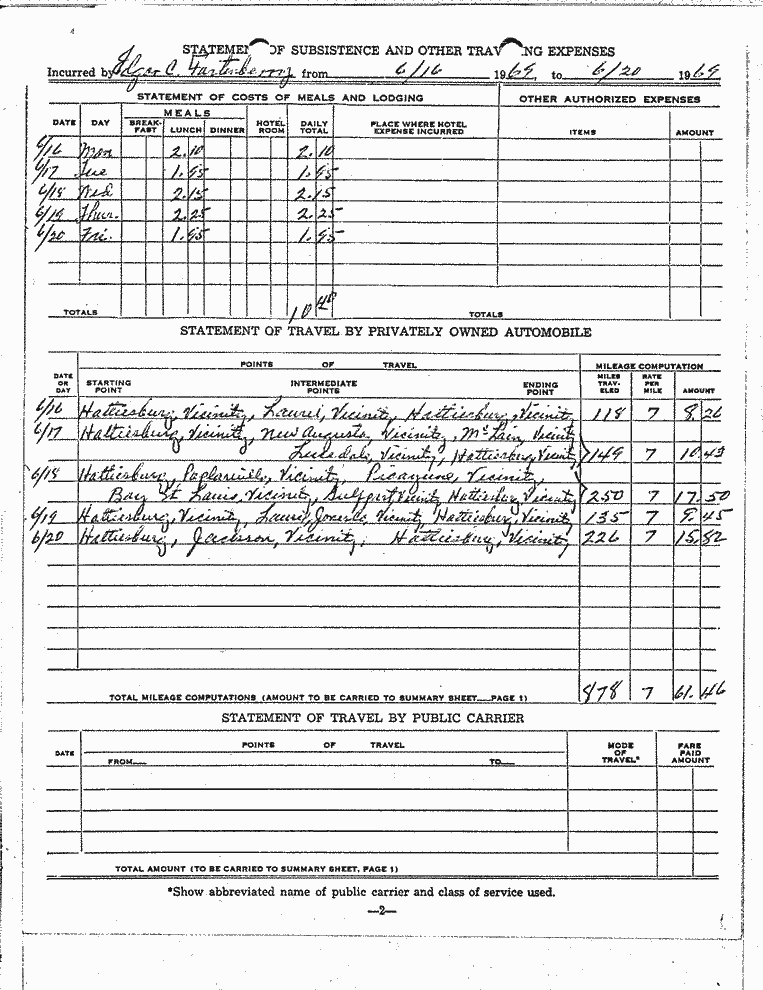 STATEMENT OF SUBSISTENCE AND OTHER TRAVELING EXPENSES
Incurred by Edgar C. Fortenberry from 6/16 1969, to 6/20 1969
STATEMENT OF COSTS OF MEALS AND LODGING OTHER AUTHORIZED EXPENSES
DATE DAY MEALS HOTEL ROOM DAILY TOTAL PLACE WHERE HOTEL EXPENSE INCURRED ITEMS AMOUNT
BREAK-FAST LUNCH DINNER
6/16 Mon 2.10 2.10
6/17 Tue 1.95 1.95
6/18 Wed 2.15 2.15
6/19 Thur. 2.25 2.25
6/20 Fri. 1.95 1.95
TOTALS 10 40 TOTALS
STATEMENT OF TRAVEL BY PRIVATELY OWNED AUTOMOBILE
DATE OR DAY POINTS OF TRAVEL MILEAGE COMPUTATION
STARTING POINT INTERMEDIATE POINTS ENDING POINT MILES TRAV-ELED RATE PER MILE AMOUNT
6/16 Hattiesburg, Vicinity, Laurel, Vicinity, Hattiesburg, Vicinity 118 7 8.26
6/17 Hattiesburg, Vicinity, New Augusta, Vicinity, McLain, Vicinity
Lucedale, Vicinity, Hattiesburg, Vicinity 149 7 10.43
6/18 Hattiesburg, Poplarville, Vicinity, Picayune, Vicinity,
Bay St. Louis, Vicinity, Gulfport Vicinity Hattiesburg Vicinity 250 7 17.50
6/19 Hattiesburg, Vicinity, Laurel, Vicinity, Hattiesburg, Vicinity 135 7 9.45
6/20 Hattiesburg, Jackson, Vicinity, Hattiesburg, Vicinity 226 7 15.82
TOTAL MILEAGE COMPUTATIONS (AMOUNT TO BE CARRIED TO SUMMARY SHEET PAGE 1) 878 7 61.46
STATEMENT OF TRAVEL BY PUBLIC CARRIER
DATE POINTS OF TRAVEL MODE OF TRAVEL* FARE PAID AMOUNT
FROM TO
TOTAL AMOUNT (TO BE CARRIED TO SUMMARY SHEET, PAGE 1)
*Show abbreviated name of public carrier and class of service used.
—2—